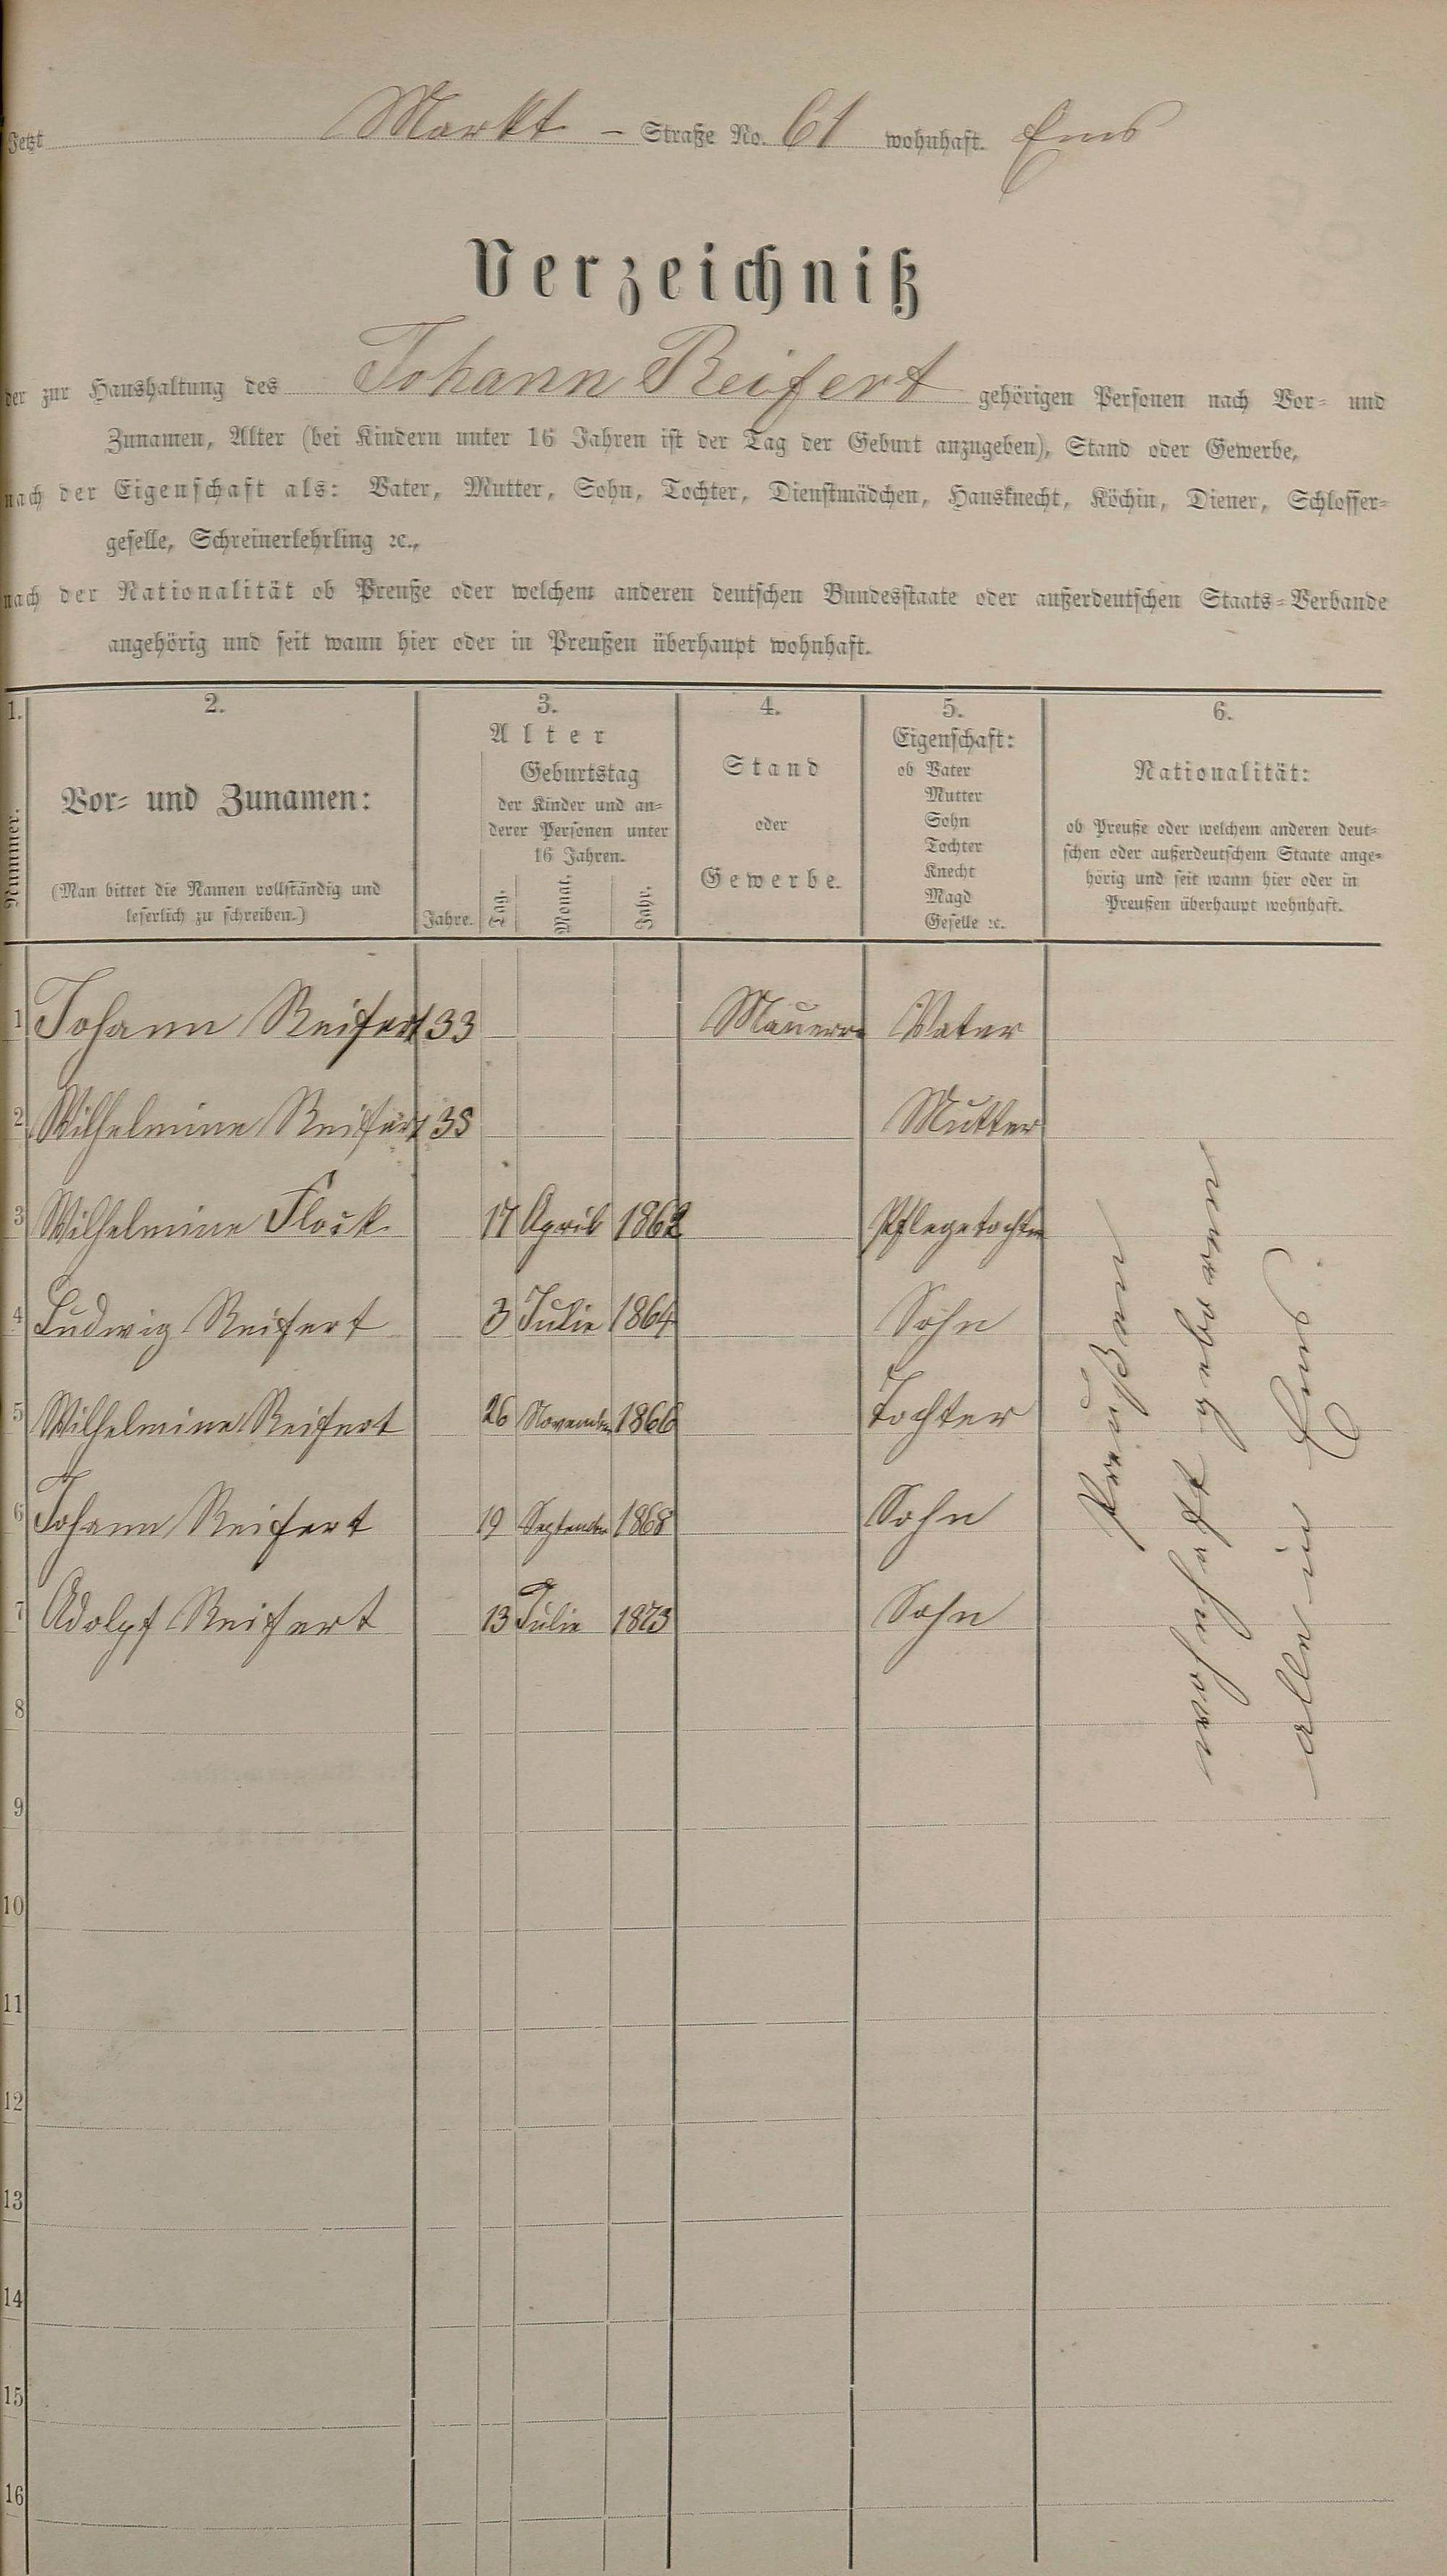 Jetzt Markt - Straße No. 61 wohnhaft. Ems
Verzeichniß
der zur Haushaltung des Johann Reifert gehörigen Personen nach Vor- und
Zunamen, Alter (bei Kindern unter 16 Jahren ist der Tag der Geburt anzugeben), Stand oder Gewerbe,
nach der Eigenschaft als: Vater, Mutter, Sohn, Tochter, Dienstmädchen, Hausknecht, Köchin, Diener, Schlosser-
geselle, Schreinerlehrling ꝛc.,
nach der Nationalität ob Preuße oder welchem anderen deutschen Bundesstaate oder außerdeutschen Staats-Verbande
angehörig und seit wann hier oder in Preußen überhaupt wohnhaft.
1.
Nummer.
2.
Vor- und Zunamen:
(Man bittet die Namen vollständig und
leserlich zu schreiben.)
3.
Alter
Geburtstag
der Kinder und an-
derer Personen unter
16 Jahren.
Jahre. Tag. Monat. Jahr.
4.
Stand
oder
Gewerbe.
5.
Eigenschaft:
ob Vater
Mutter
Sohn
Tochter
Knecht
Magd
Geselle ꝛc.
6.
Nationalität:
ob Preuße oder welchem anderen deut-
schen oder außerdeutschem Staate ange-
hörig und seit wann hier oder in
Preußen überhaupt wohnhaft.
1 Johann Reifert 33 Maurer Vater
2 Wilhelmine Reifert 38 Mutter
3 Wilhelmine Flock 17 April 1862 Pflegetochter
4 Ludwig Reifert 3 Julie 1864 Sohn
5 Wilhelmine Reifert 26 November 1866 Tochter
6 Johann Reifert 19 September 1868 Sohn
7 Adolpf Reifert 13 Julie 1873 Sohn
8
9
10
11
12
13
14
15
16
Preußen
wohnhaft geboren
alle in Ems.